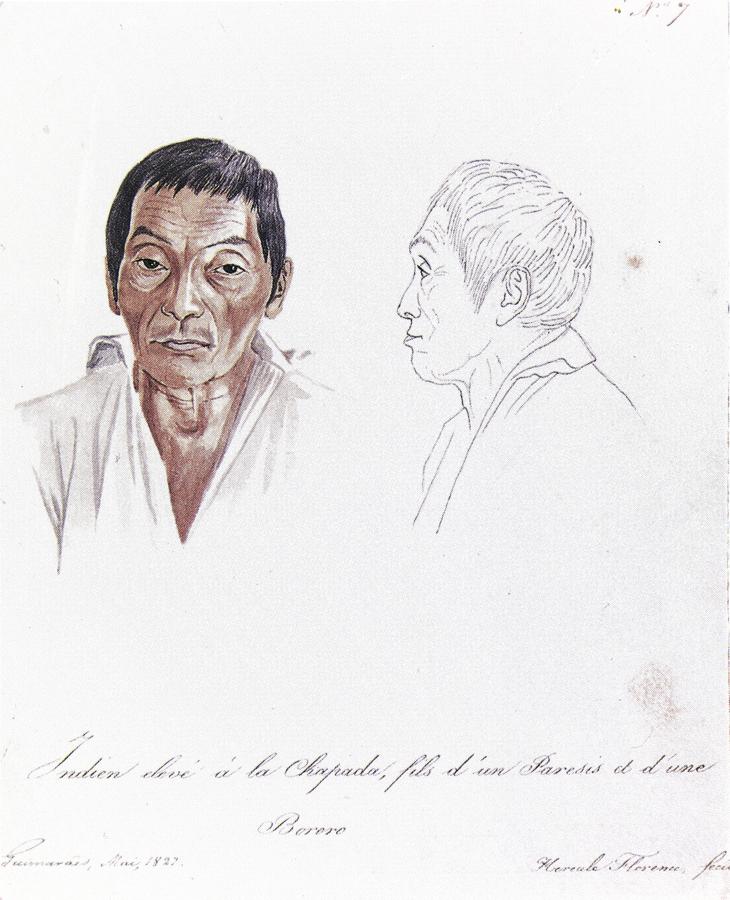 Nº 7
Indien elevé á la Chapada, fils d'un Paresis et d'une
Bororo
Guimarães, Mai, 1827.
Hercule Florence, fecit